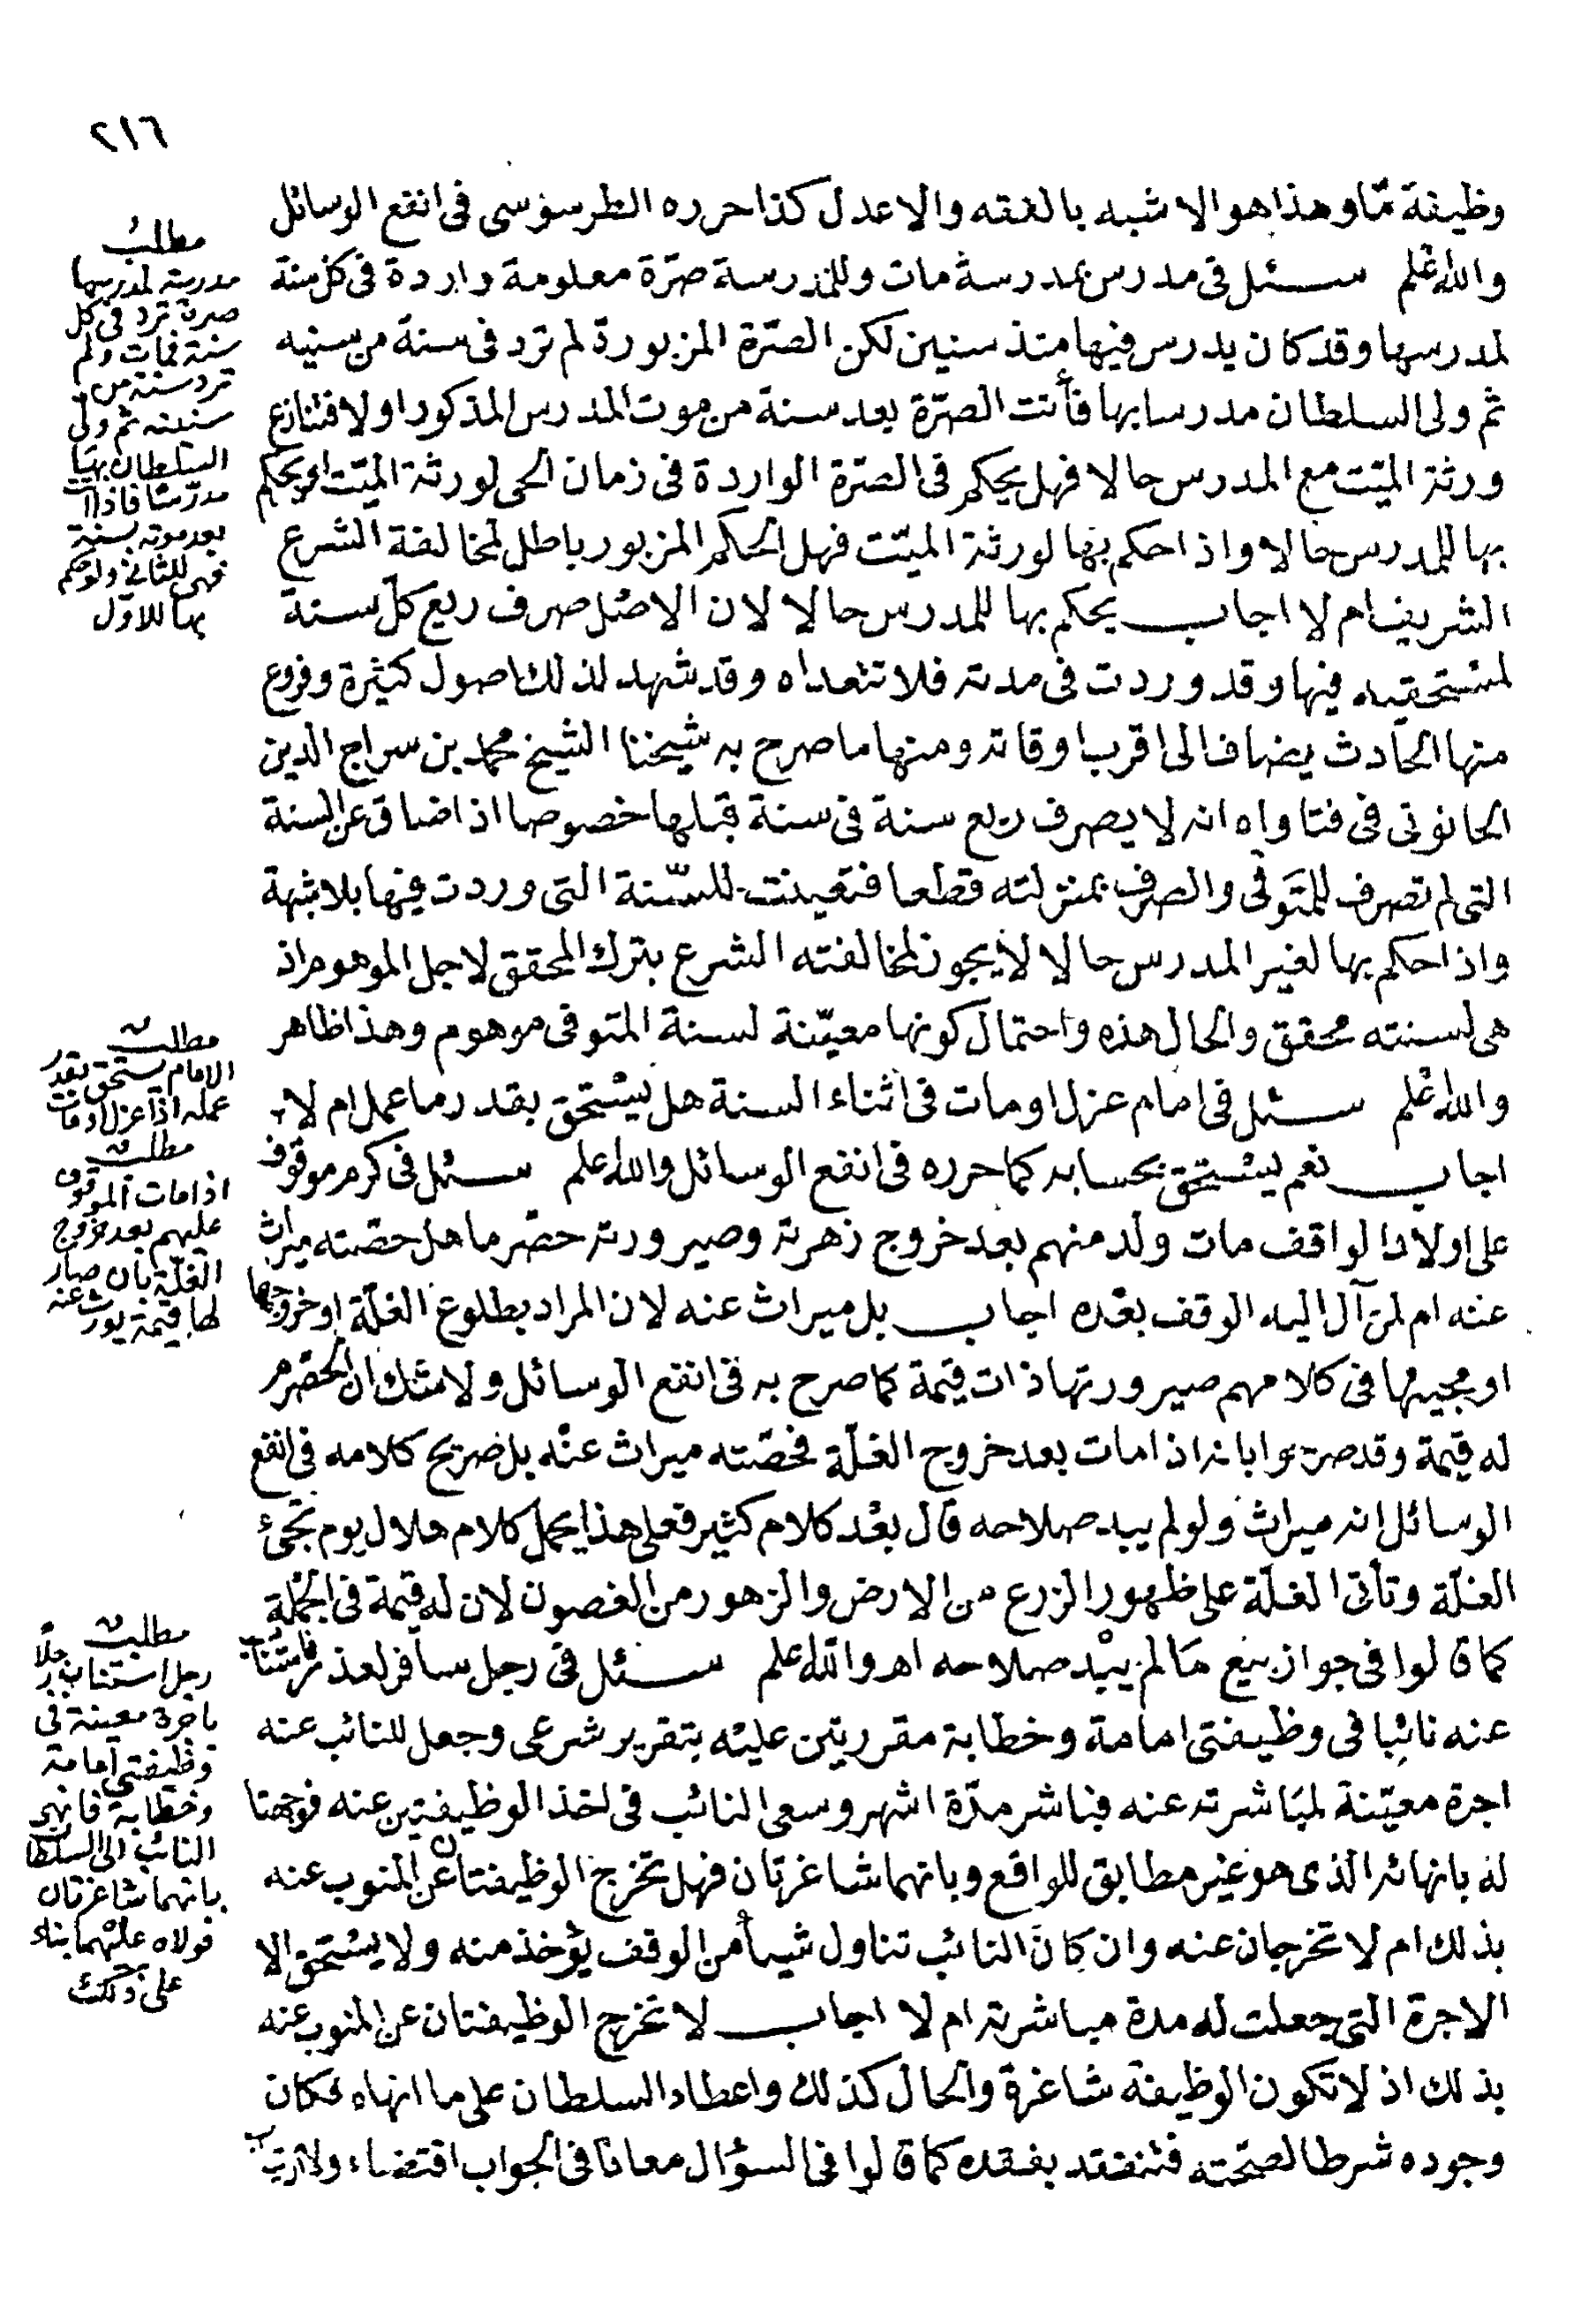 ٢١٦
وظيفة مّا وهذا هو الاشبه بالفقه والاعدل كذا حرره الطرسوسى فى انفع الوسائل
والله اعلم سئل فى مدرس بمدرسة مات وللمدرسة صرّة معلومة واردة فى كل سنة
لمدرسها وقد كان يدرس فيها منذ سنين لكن الصّرة المزبورة لم ترد فى سنة من سنيه
ثم ولى السلطان مدرسا بها فأتت الصرّة بعد سنة من موت المدرس المذكور اولا فتنازع
ورثة الميّت مع المدرس حالا فهل يحكم فى الصّرة الواردة فى زمان الحى لورثة الميّت او يحكم
بها للمدرس حالا واذا حكم بها لورثة الميّت فهل الحكم المزبور باطل لمخالفة الشرع
الشريف ام لا اجاب يحكم بها للمدرس حالا لان الاصل صرف ريع كل سنة
لمستحقيه فيها وقد وردت فى مدته فلا تتعداه وقد شهد لذلك اصول كثيرة وفروع
منها الحادث يضاف الى اقرب اوقاته ومنها ما صرح به شيخنا الشيخ محمد بن سراج الدين
الحانوتى فى فتاواه انه لا يصرف ريع سنة فى سنة قبلها خصوصا اذا ضاق عن السنة
التى لم تصرف للمتوفى والصرف بمنزلته قطعا فتعينت للسّنة التى وردت فيها بلا شبهة
واذا حكم بها لغير المدرس حالا لا يجوز لمخالفته الشرع بترك المحقق لاجل الموهوم اذ
هى لسنته محقق والحال هذه واحتمال كونها معيّنة لسنة المتوفى موهوم وهذا ظاهر
والله اعلم سئل فى امام عزل او مات فى اثناء السنة هل يستحق بقدر ما عمل ام لا
اجاب نعم يستحق بحسابه كما حرره فى انفع الوسائل والله اعلم سئل فى كرم موقوف
على اولاد الواقف مات ولد منهم بعد خروج زهرته وصيرورته حصرما هل حصّته ميراث
عنه ام لمن آل اليه الوقف بعده اجاب بل ميراث عنه لان المراد بطلوع الغلّة او خروجها
او مجيئها فى كلامهم صيرورتها ذات قيمة كما صرح به فى انفع الوسائل ولا شك ان الحصرم
له قيمة وقد صرحوا بانه اذا مات بعد خروج الغلّة فحصّته ميراث عنه بل صريح كلامه فى انفع
الوسائل انه ميراث ولو لم يبد صلاحه قال بعد كلام كثير فعلى هذا يحمل كلام هلال يوم تجئ
الغلّة وتأتى الغلّة على ظهور الزرع من الارض والزهور من الغصون لان له قيمة فى الجملة
كما قالوا فى جواز بيع ما لم يبد صلاحه اهـ والله اعلم سئل فى رجل سافر لعذر فاستناب
عنه نائبا فى وظيفتى امامة وخطابة مقررتين عليه بتقرير شرعى وجعل للنائب عنه
اجرة معيّنة لمباشرته عنه فباشر مدّة اشهر وسعى النائب فى اخذ الوظيفتين عنه فوجهتا
له بانهائه الذى هو غير مطابق للواقع وبانهما شاغرتان فهل تخرج الوظيفتان عن المنوب عنه
بذلك ام لا تخرجان عنه وان كان النائب تناول شيأ من الوقف يؤخذ منه ولا يستحق الا
الاجرة التى جعلت له مدة مباشرته ام لا اجاب لا تخرج الوظيفتان عن المنوب عنه
بذلك اذ لا تكون الوظيفة شاغرة والحال كذلك واعطاء السلطان على ما انهاه فكان
وجوده شرطا لصحّته فتنفقد بفقده كما قالوا فى السؤال معاد فى الجواب اقتضاء ولا ريب
مطلب
مدرسة لمدرسها
صرة ترد فى كل
سنة فمات ولم
ترد سنة من
سنينه ثم ولى
السلطان بها
مدرّسا فاذا اتت
بعد موته بسنة
فهى للثانى ولو حكم
بها للاوّل
مطلب
الامام يستحق بقدر
عمله اذا عزل او مات
مطلب
اذا مات الموقوف
عليهم بعد خروج
الغلّة بان صار
لها قيمة يورث عنه
مطلب
رجل استناب رجلاً
باجرة معينة فى
وظيفتى امامة
وخطابة فانهى
النائب الى السلطان
بانهما شاغرتان
فولاه عليهما بناء
على ذلك